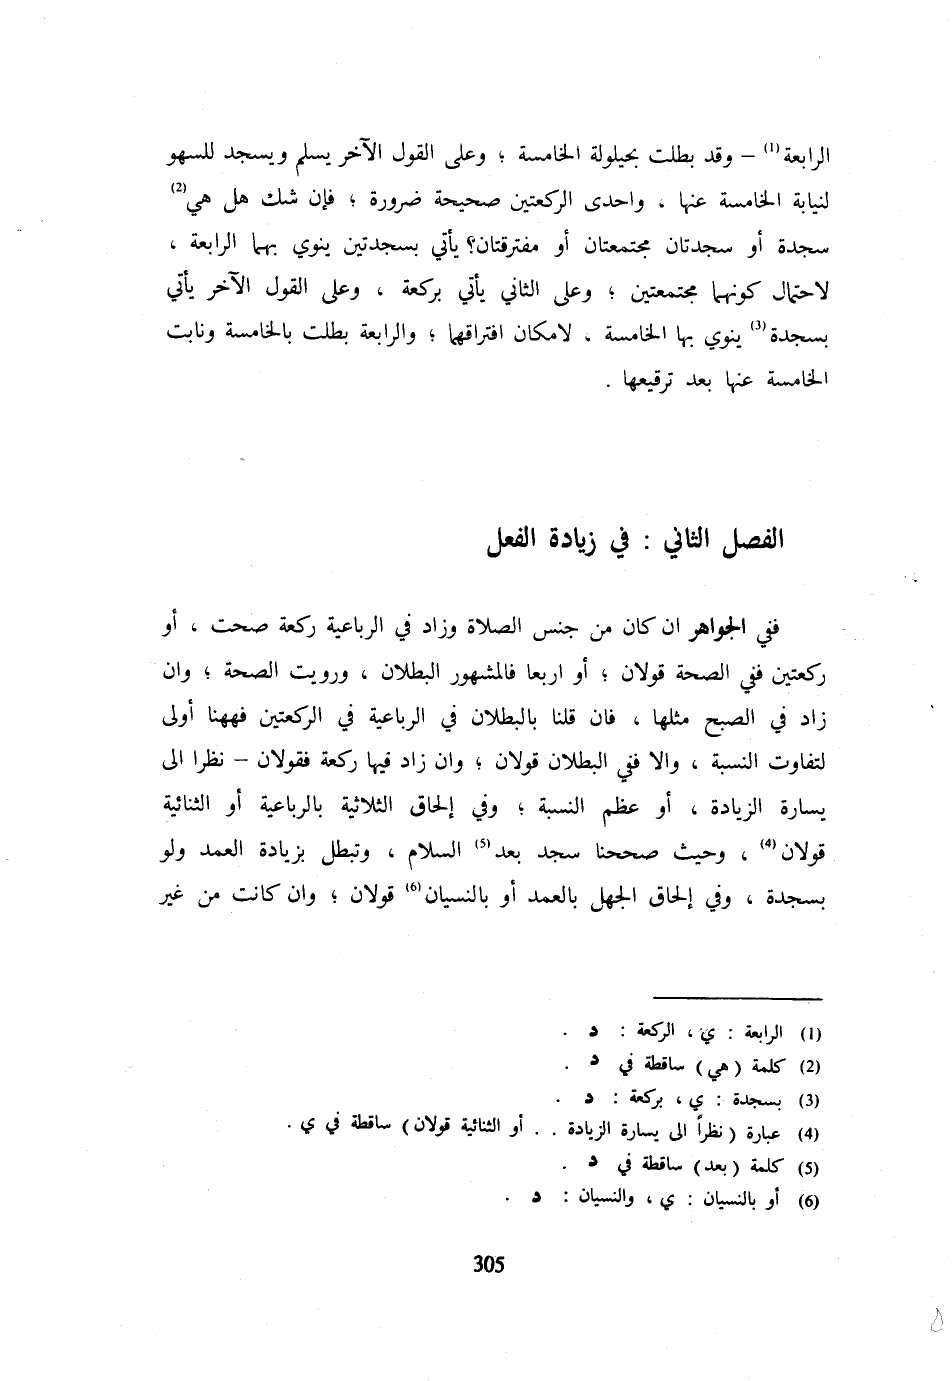 الرابعة(1) – وقد بطلت بحيلولة الخامسة ؛ وعلى القول الآخر يسلم ويسجد للسهو
لنيابة الخامسة عنها ، واحدى الركعتين صحيحة ضرورة ؛ فإن شك هل هي(2)
سجدة أو سجدتان مجتمعتان أو مفترقتان؟ يأتي بسجدتين ينوي بهما الرابعة ،
لاحتمال كونهما مجتمعتين ؛ وعلى الثاني يأتي بركعة ، وعلى القول الآخر يأتي
بسجدة(3) ينوي بها الخامسة ، لامكان افتراقهما ؛ والرابعة بطلت بالخامسة ونابت
الخامسة عنها بعد ترقيعها .
الفصل الثاني : في زيادة الفعل
ففي الجواهر ان كان من جنس الصلاة وزاد في الرباعية ركعة صحت ، أو
ركعتين ففي الصحة قولان ؛ أو اربعا فالمشهور البطلان ، ورويت الصحة ؛ وان
زاد في الصبح مثلها ، فان قلنا بالبطلان في الرباعية في الركعتين فههنا أولى
لتفاوت النسبة ، والا ففي البطلان قولان ؛ وان زاد فيها ركعة فقولان – نظرا الى
يسارة الزيادة ، أو عظم النسبة ؛ وفي إلحاق الثلاثية بالرباعية أو الثنائية
قولان(4) ، وحيث صححنا سجد بعد(5) السلام ، وتبطل بزيادة العمد ولو
بسجدة ، وفي إلحاق الجهل بالعمد أو بالنسيان(6) قولان ؛ وان كانت من غير
(1) الرابعة : ي ، الركعة : د .
(2) كلمة (هي) ساقطة في د .
(3) بسجدة : ي ، بركعة : د .
(4) عبارة (نظراً الى يسارة الزيادة . . أو الثنائية قولان) ساقطة في ي .
(5) كلمة (بعد) ساقطة في د .
(6) أو بالنسيان : ي ، والنسيان : د .
305